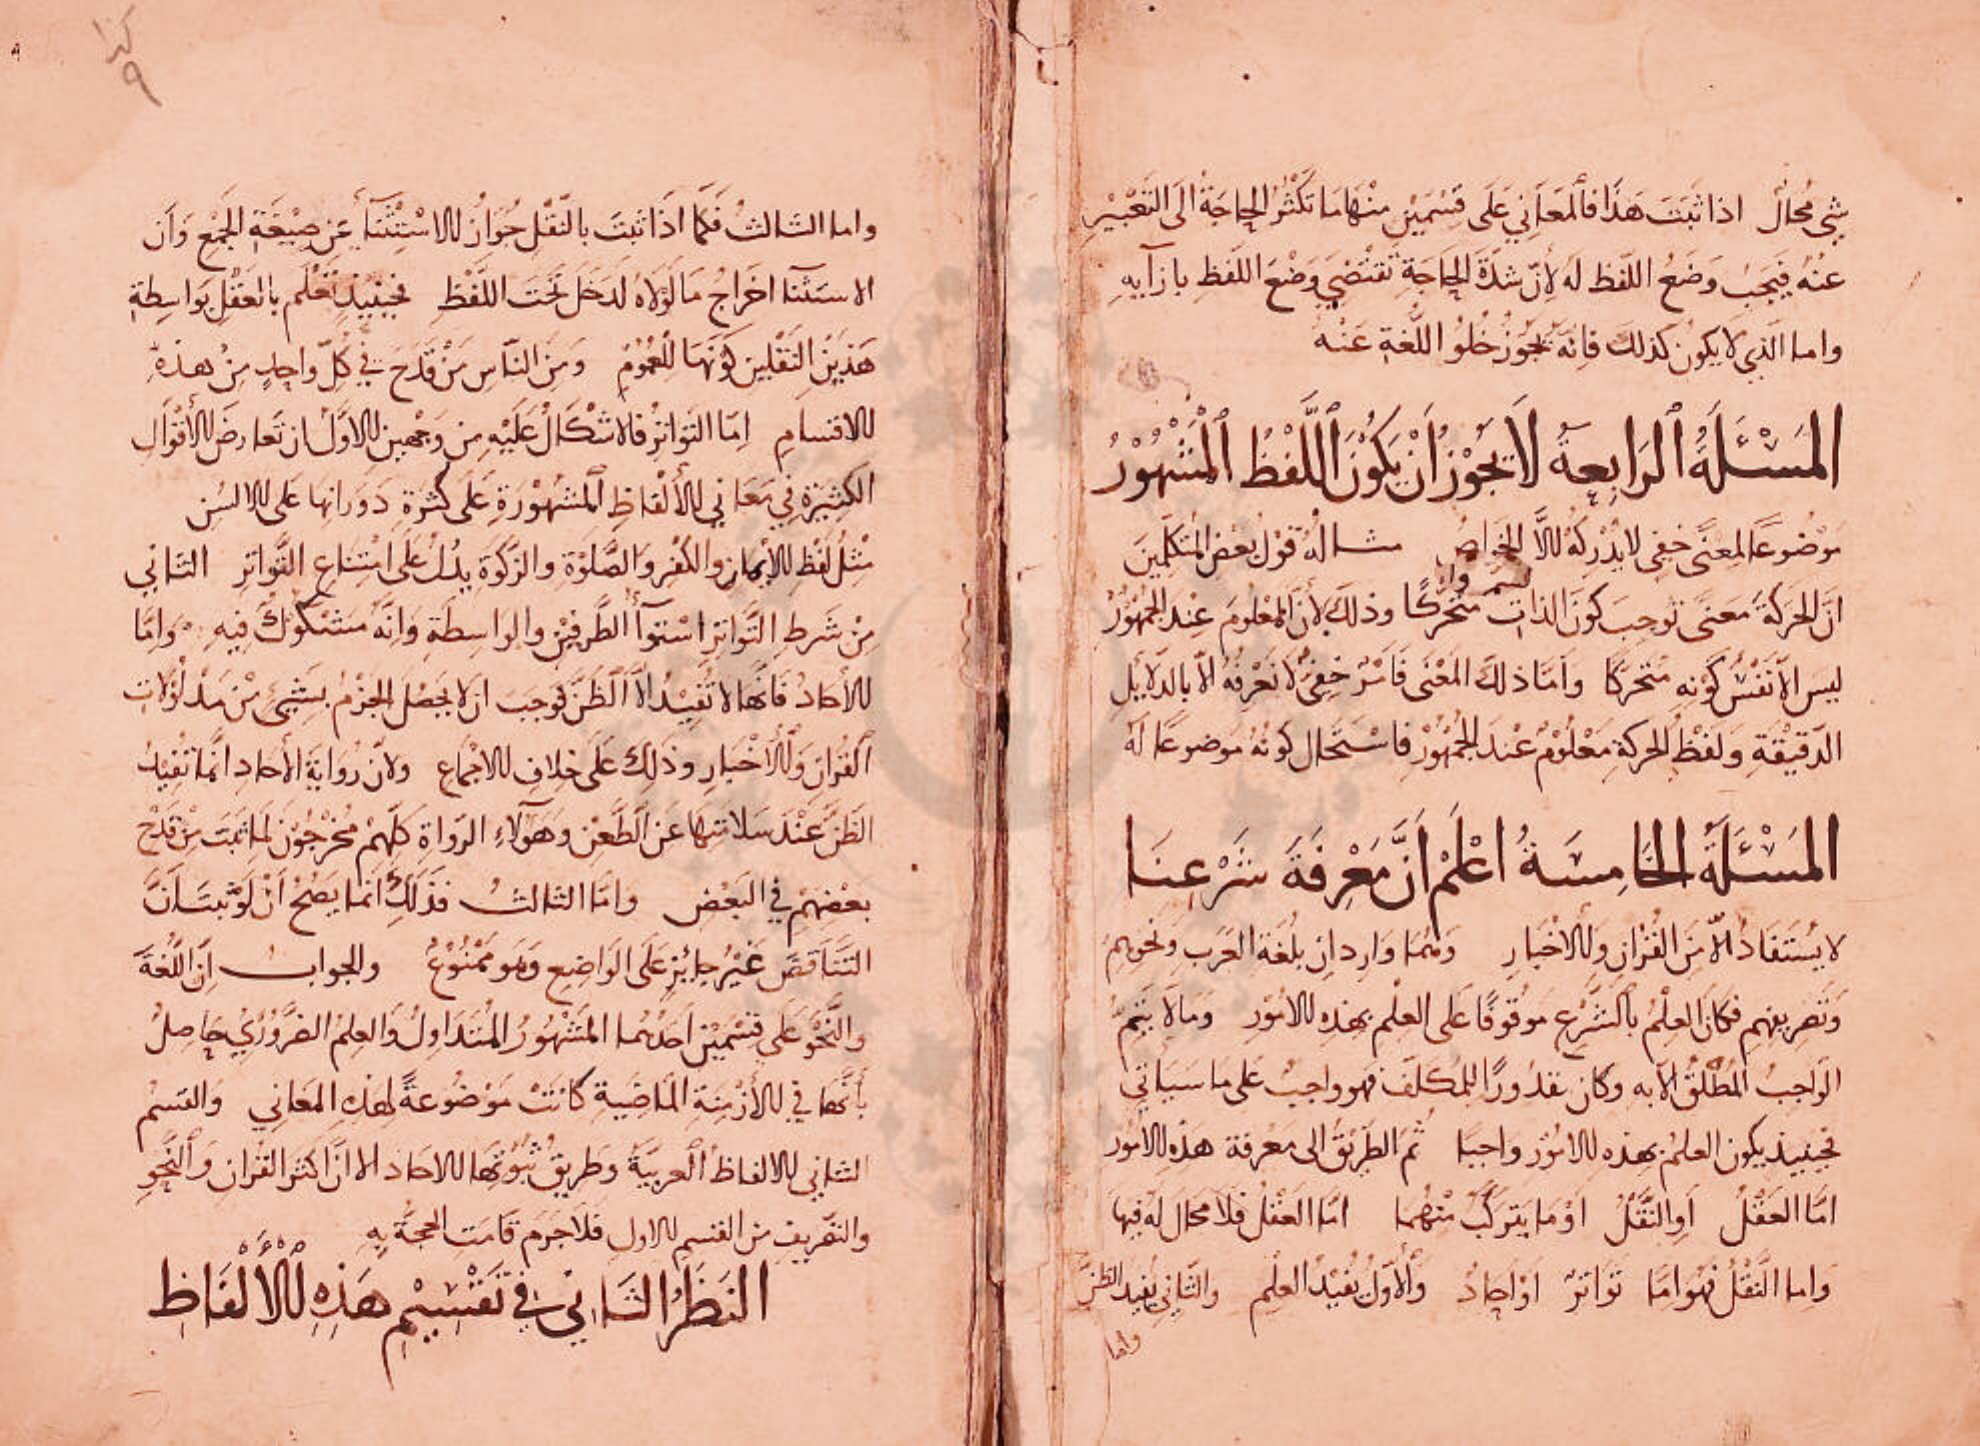 شي محال اذا ثبت هذا فالمعاني على قسمين منها ما تكثر الحاجة الى التعبير
عنه فيجب وضع اللفظ له لأن شدة الحاجة تقتضي وضع اللفظ بازآيه
واما الذي لا يكون كذلك فانه يجوز خلو اللغة عنه
المسئلة الرابعة لا يجوز ان يكون اللفظ المشهور
موضوعا لمعنى خفي لا يدركه الا الخواص مثاله قول بعض المتكلمين
ان الحركة معنى توجب كون الذات متحركا وذلك لأن المعلوم عند الجمهور
ليس الا نفس كونه متحركا واما ذلك المعنى فامر خفي لا نعرفه الا بالدلايل
الدقيقة ولفظ الحركة معلوم عند الجمهور فاستحال كونه موضوعا له
المسئلة الخامسة اعلم أن معرفة شرعنا
لا يستفاد الا من القران والأخبار وهما واردان بلغة العرب ونحوهم
وتصريفهم فكان العلم بالشرع موقوفا على العلم بهذه الامور وما لا يتم
الواجب المطلق الا به وكان مقدورا للمكلف فهو واجب على ما سيأتي
فحينيذ يكون العلم بهذه الامور واجبا ثم الطريق الى معرفة هذه الامور
اما العقل او النقل او ما يتركب منهما اما العقل فلا مجال له فيها
واما النقل فهو اما تواتر او احاد والأول يفيد العلم والثاني يفيد الظن
واما
كذا
٩
واما الثالث فكما اذا ثبت بالنقل جواز الاستثنآ عن صيغة الجمع وأن
الاستثنآ اخراج ما لولاه لدخل تحت اللفظ فحينيذ نعلم بالعقل بواسطة
هذين النقلين كونها للعموم ومن الناس من قدح في كل واحد من هذه
الاقسام اما التواتر فالاشكال عليه من وجهين الاول ان تعارض الأقوال
الكثيرة في معاني الألفاظ المشهورة على كثرة دورانها على الالسن
مثل لفظ الايمان والكفر والصلوة والزكوة يدل على امتناع التواتر الثاني
من شرط التواتر استوآ الطرفين والواسطة وانه مشكوك فيه واما
الأحاد فانها لا تفيد الا الظن فوجب ان لا يحصل الجزم بشيئ من مدلولات
القران والأخبار وذلك على خلاف الاجماع ولان رواية الأحاد انما تفيد
الظن عند سلامتها عن الطعن وهولآء الرواة كلهم مجرحون لما ثبت من قدح
بعضهم في البعض واما الثالث فذلك انما يصح أن لو ثبت أن
التناقض غير جايز على الواضع وهو ممنوع والجواب ان اللغة
والنحو على قسمين احدهما المشهور المتداول والعلم الضروري حاصل
بأنها في الأزمنة الماضية كانت موضوعة لهذه المعاني والقسم
الثاني الالفاظ العربية وطريق ثبوتها الاحاد الا ان اكثر القران والنحو
والتصريف من القسم الاول فلا جرم قامت الحجة به
النظر الثاني في تقسيم هذه الألفاظ